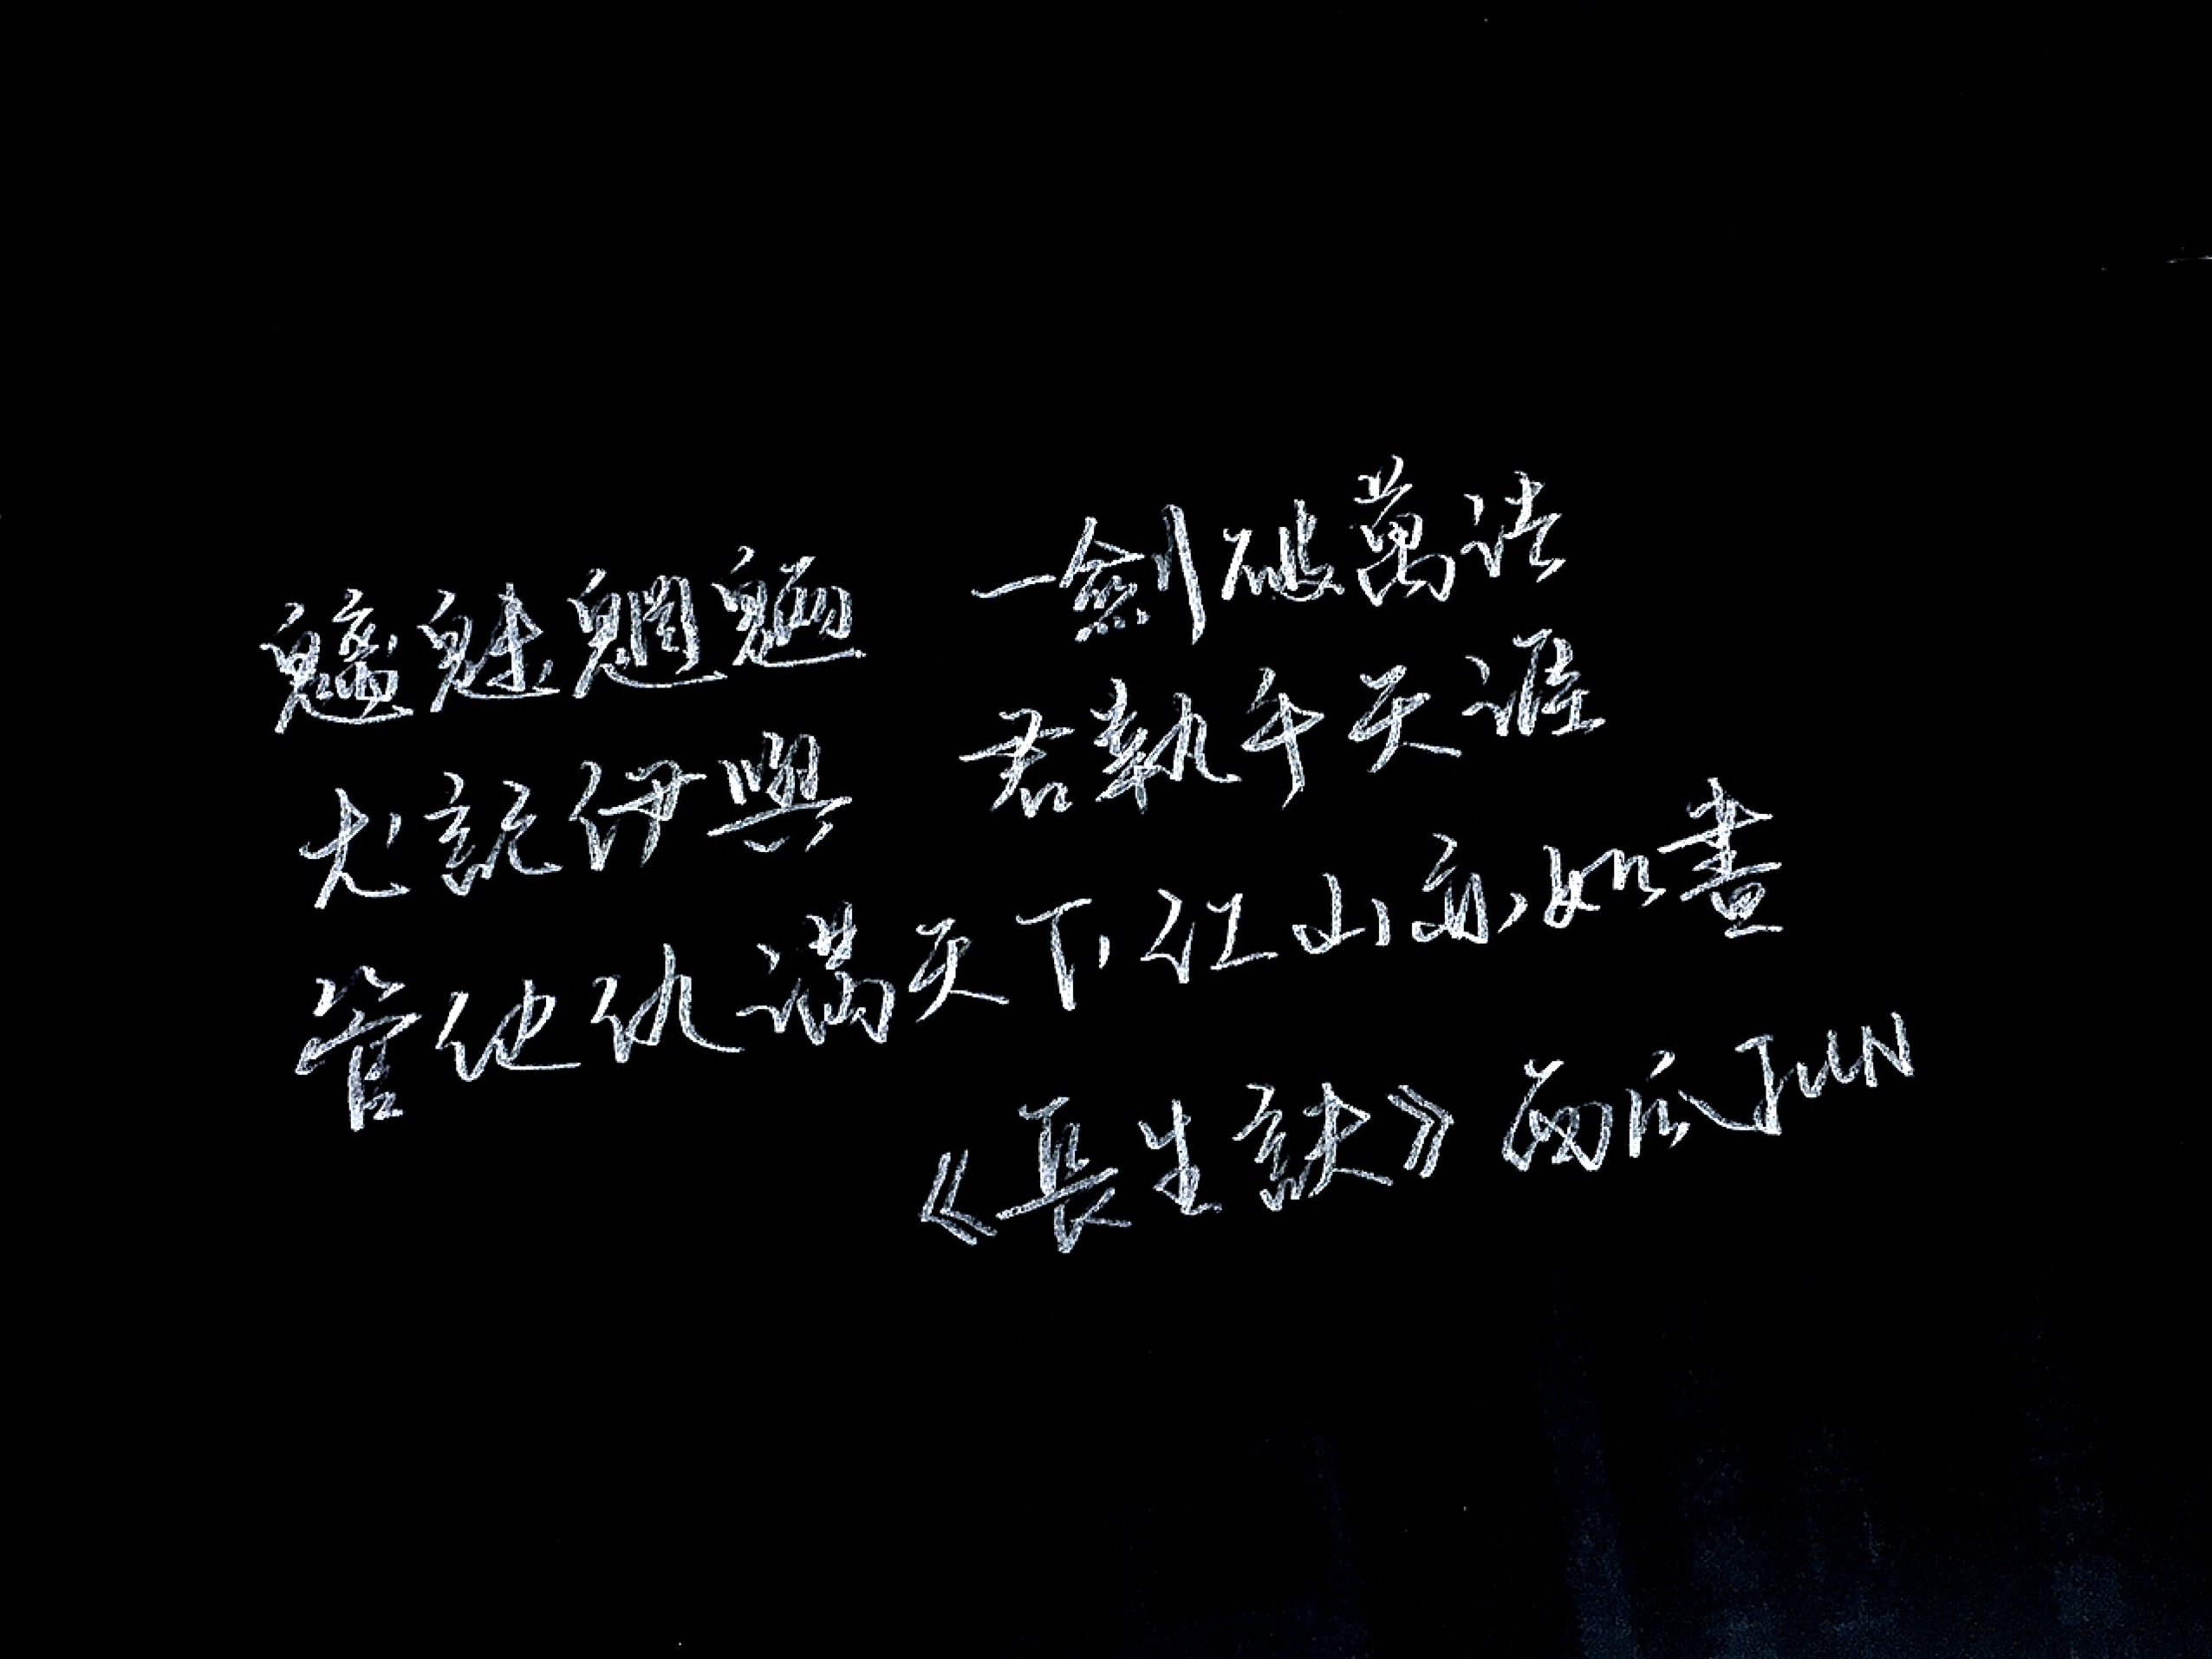 魑魅魍魎 一劍破萬法
尤記伊與君執手天涯
管他仇滿天下江山亦如畫
《長生訣》西瓜JUN